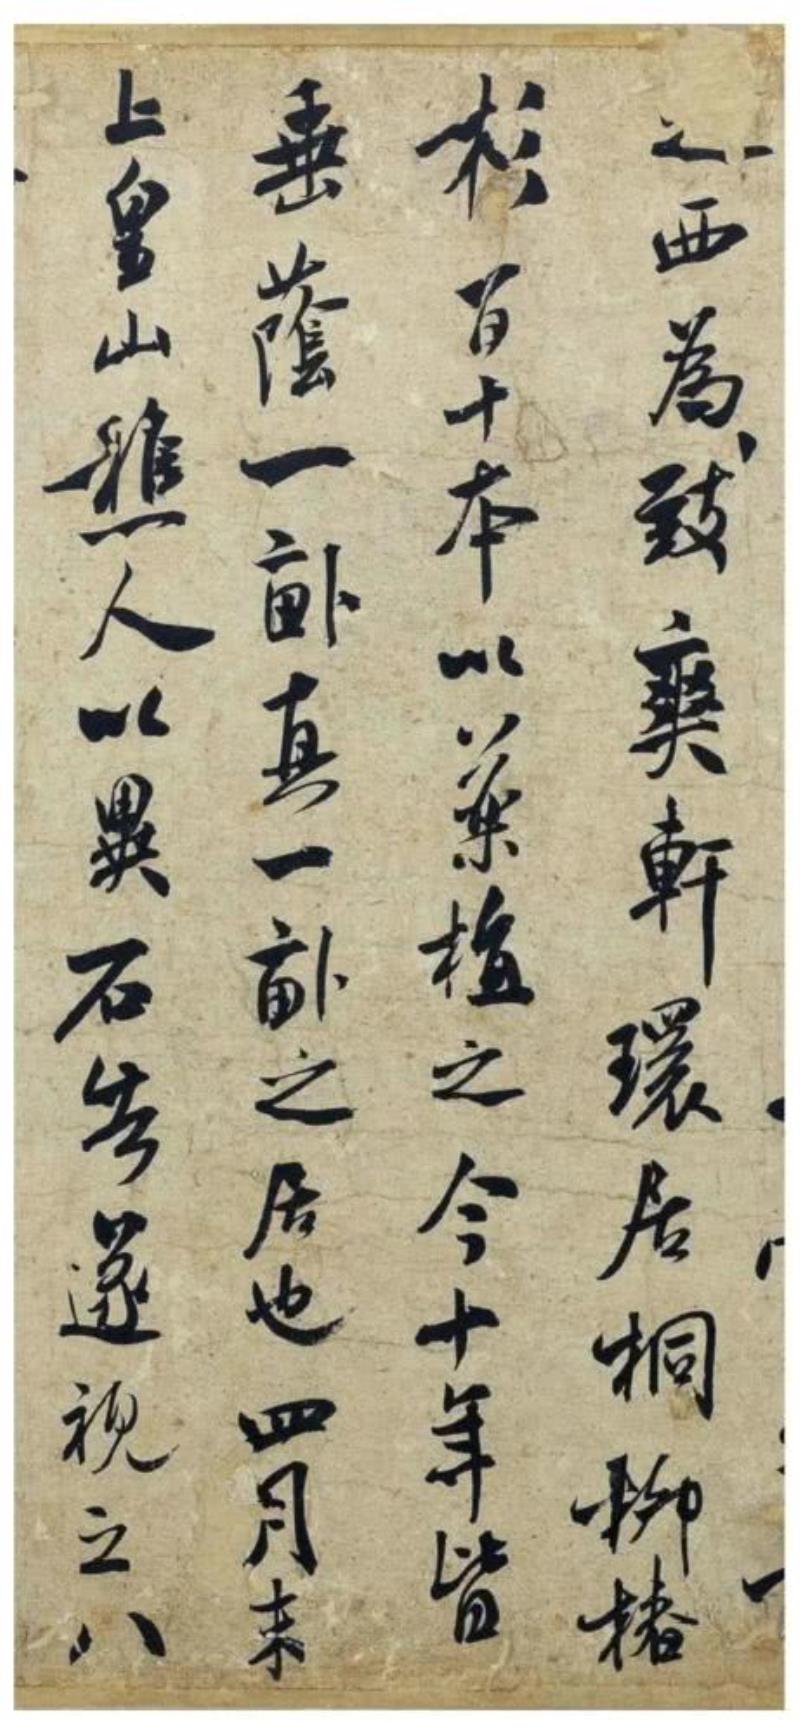 之西為致爽軒環居桐柳椿
杉百十本以葉植之今十年皆
垂蔭一畝真一畝之居也四月末
上皇山樵人以異石告遂視之八